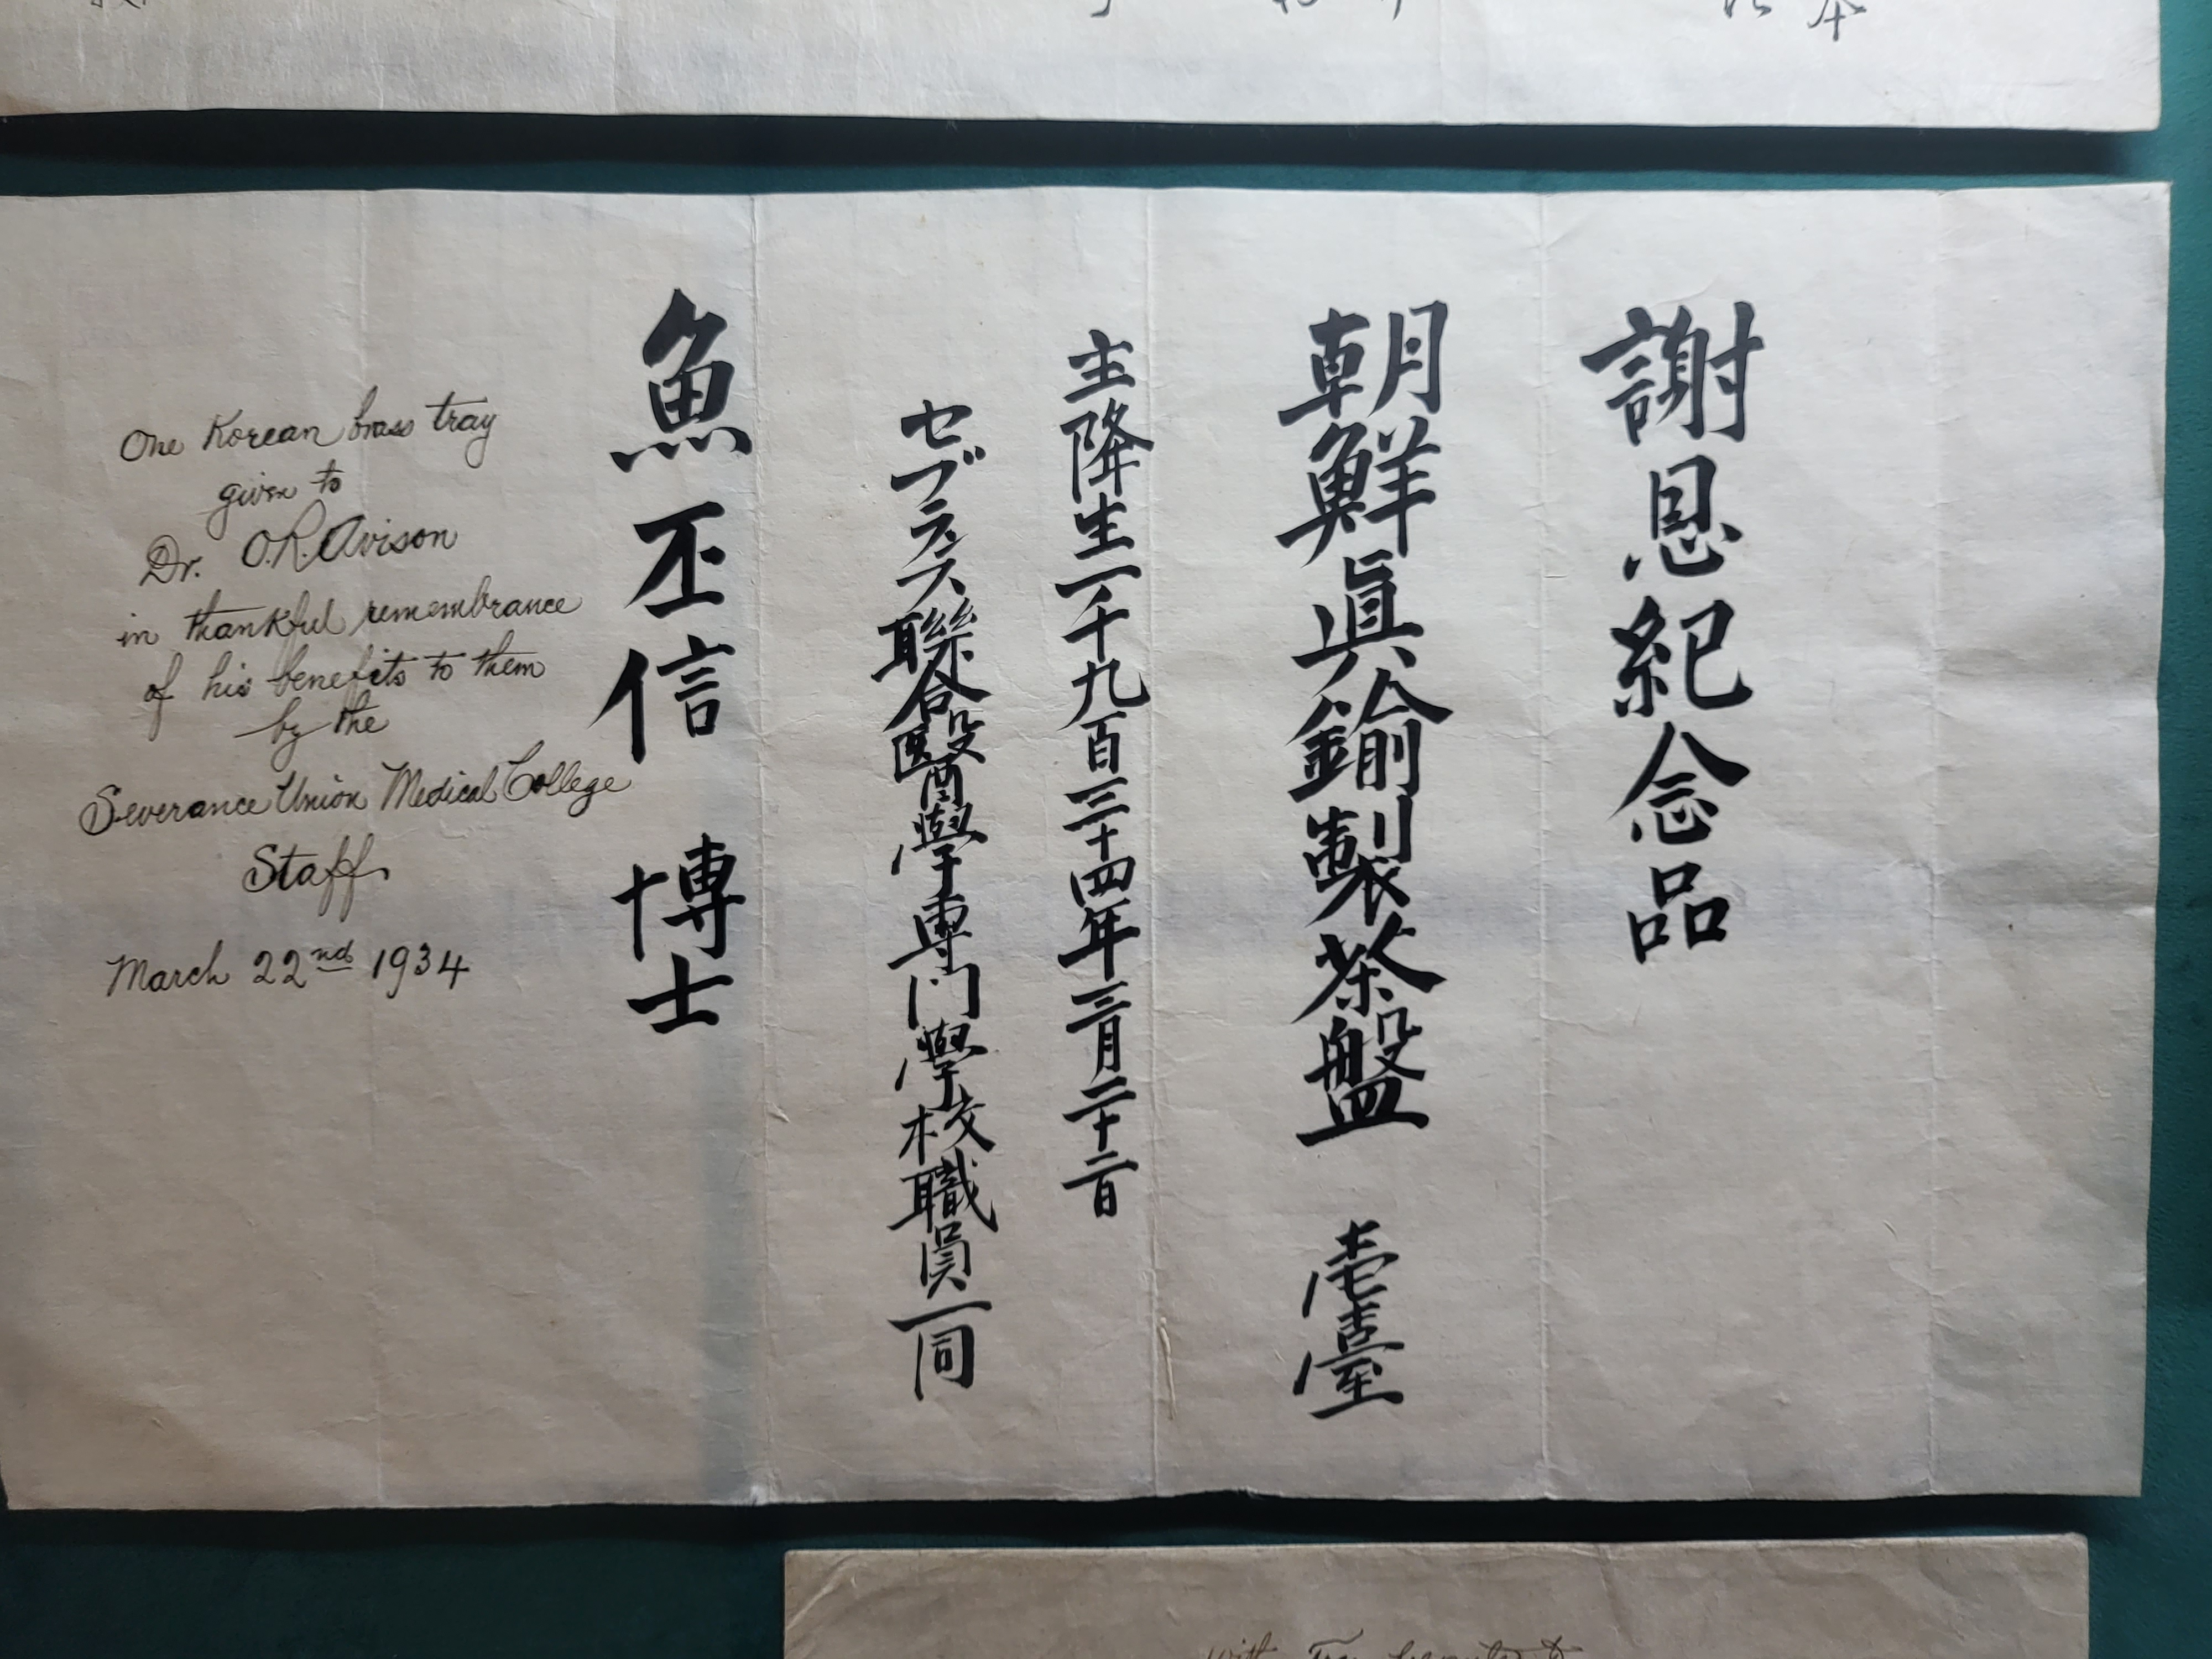 謝恩紀念品
朝鮮眞鍮製茶盤 壱臺
主降生一千九百三十四年三月二十二日
セブランス聯合醫學專門學校職員一同
魚丕信 博士
One Korean brass tray
given to
Dr. O.R. Avison
in thankful remembrance
of his benefits to them
by the
Severance Union Medical College
Staff
March 22nd 1934